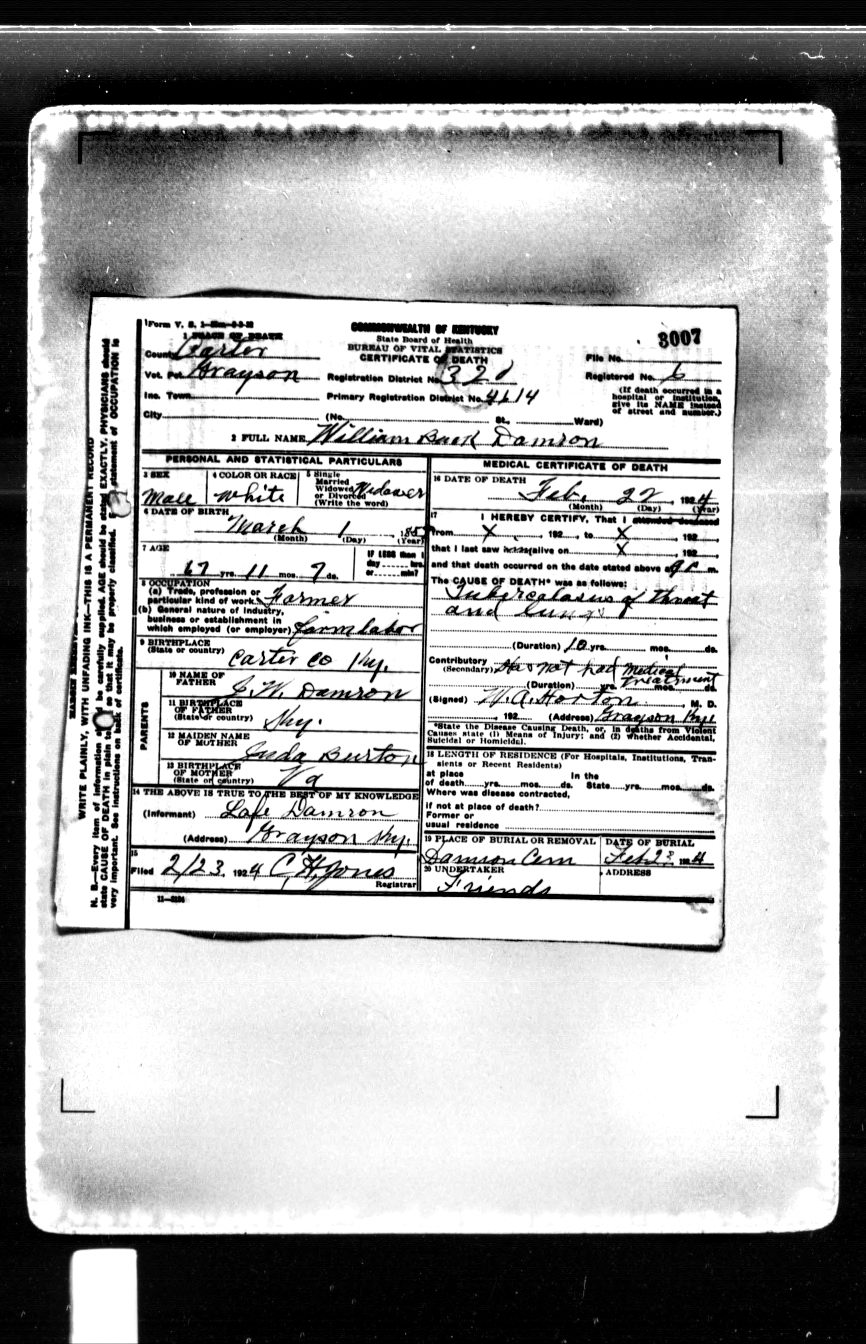 Form V. S. 1
1 PLACE OF DEATH
COMMONWEALTH OF KENTUCKY
State Board of Health
BUREAU OF VITAL STATISTICS
CERTIFICATE OF DEATH
3007
County Carter
File No.
Vot. Pct. Grayson
Registration District No. 320
Registered No. 6
Inc. Town
Primary Registration District No. 4614
(If death occurred in a hospital or institution, give its NAME instead of street and number.)
City
(No. St., Ward)
2 FULL NAME William Back Damron
PERSONAL AND STATISTICAL PARTICULARS
3 SEX Male
4 COLOR OR RACE white
5 Single Married Widowed or Divorced (Write the word) Widower
6 DATE OF BIRTH
March 1
(Month) (Day) (Year)
7 AGE
67 yrs. 11 mos. 7 ds.
IF LESS than 1 day hrs. or min?
8 OCCUPATION
(a) Trade, profession or particular kind of work Farmer
(b) General nature of industry, business or establishment in which employed (or employer) farm labor
9 BIRTHPLACE
(State or country) Carter Co Ky.
PARENTS
10 NAME OF FATHER J. W. Damron
11 BIRTHPLACE OF FATHER (State or country) Ky.
12 MAIDEN NAME OF MOTHER Juda Burton
13 BIRTHPLACE OF MOTHER (State or country) Va
14 THE ABOVE IS TRUE TO THE BEST OF MY KNOWLEDGE
(Informant) Lafe Damron
(Address) Grayson Ky.
15
Filed 2/23, 1924 C. H. Jones
Registrar
11-3184
MEDICAL CERTIFICATE OF DEATH
16 DATE OF DEATH
Feb. 22, 1924
(Month) (Day) (Year)
17 I HEREBY CERTIFY, That I attended deceased
from X, 192 , to X, 192
that I last saw h alive on X, 192
and that death occurred on the date stated above at 9 m.
The CAUSE OF DEATH* was as follows:
Tubercalasus of throat
and lungs
(Duration) 10 yrs. mos. ds.
Contributory (Secondary) Has not had Medical
Treatment
(Duration) yrs. mos. ds.
(Signed) W. A. Horton, M. D.
, 192 (Address) Grayson Ky.
*State the Disease Causing Death, or, in deaths from Violent
Causes state (1) Means of Injury; and (2) whether Accidental,
Suicidal or Homicidal.
18 LENGTH OF RESIDENCE (For Hospitals, Institutions, Tran-
sients or Recent Residents)
at place of death yrs. mos. ds. In the State yrs. mos. ds.
Where was disease contracted,
if not at place of death?
Former or
usual residence
19 PLACE OF BURIAL OR REMOVAL
Damron Cem
DATE OF BURIAL
Feb 23 1924
20 UNDERTAKER
Friends
ADDRESS
WRITE PLAINLY, WITH UNFADING INK—THIS IS A PERMANENT RECORD
N. B.—Every item of information should be carefully supplied. AGE should be stated EXACTLY. PHYSICIANS should
state CAUSE OF DEATH in plain terms, so that it may be properly classified. Exact statement of OCCUPATION is
very important. See instructions on back of certificate.